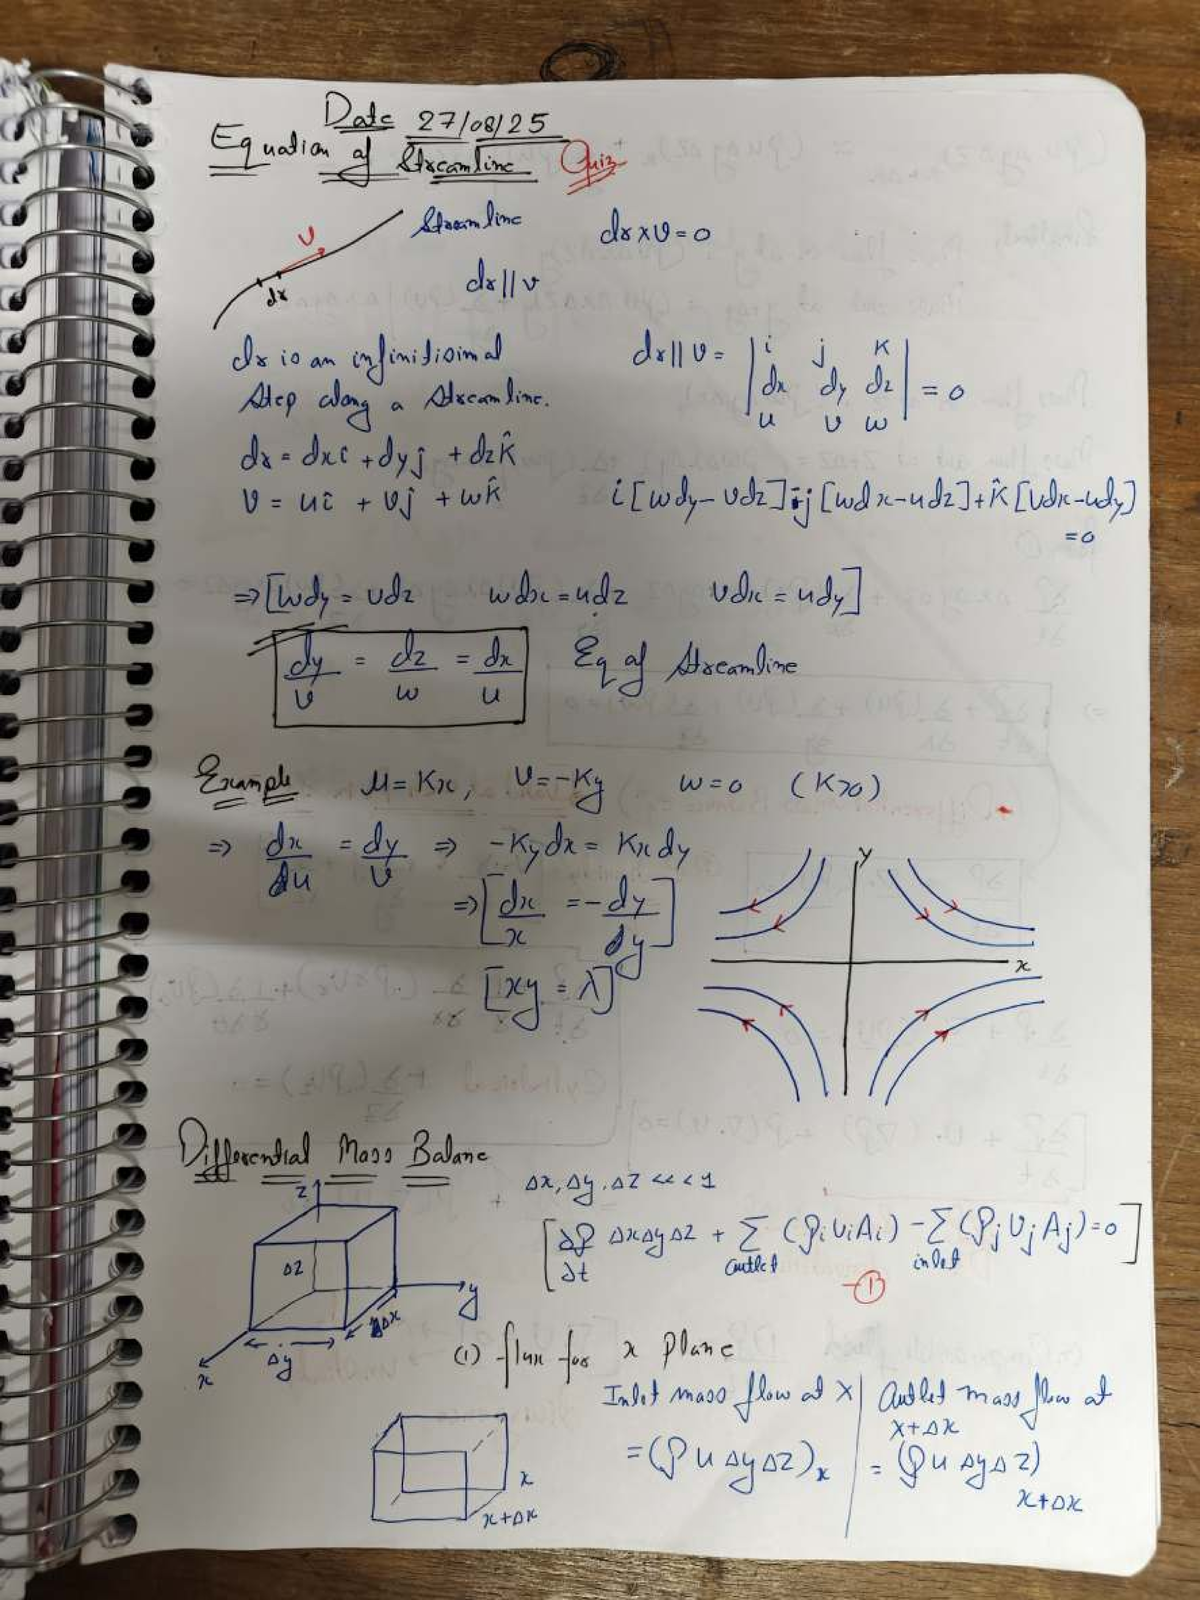 Date 27/08/25
Equation of Streamline Quiz
Streamline
dr×v=0
v
dr
dr||v
dr is an infinitisimal
Step along a Streamline.
dr||v = | i j k
dx dy dz
u v w | = 0
dr = dxî + dyĵ + dzk̂
v = uî + vĵ + wk̂
i[wdy-vdz]-j[wdx-udz]+k̂[vdx-udy]
=0
⇒[wdy = vdz wdx = udz vdx = udy]
dy/v = dz/w = dx/u Eq of Streamline
Example u = Kx, v = -Ky w = 0 (K>0)
⇒ dx/u = dy/v ⇒ -Kydx = Kxdy
⇒[dx/x = -dy/y]
[xy = λ]
y
x
Differential Mass Balanc
Δx, Δy, ΔZ <<<1
[∂ρ/∂t ΔxΔyΔZ + Σ outlet (ρi vi Ai) - Σ inlet (ρj vj Aj)=0]
-①
Z
ΔZ
y
Δx
Δy
x
(1) flux for x Plane
Inlet mass flow at x | Outlet mass flow at
x+Δx
= (ρ u Δy Δz)x | = (ρ u Δy Δz)
x+Δx
x
x+Δx